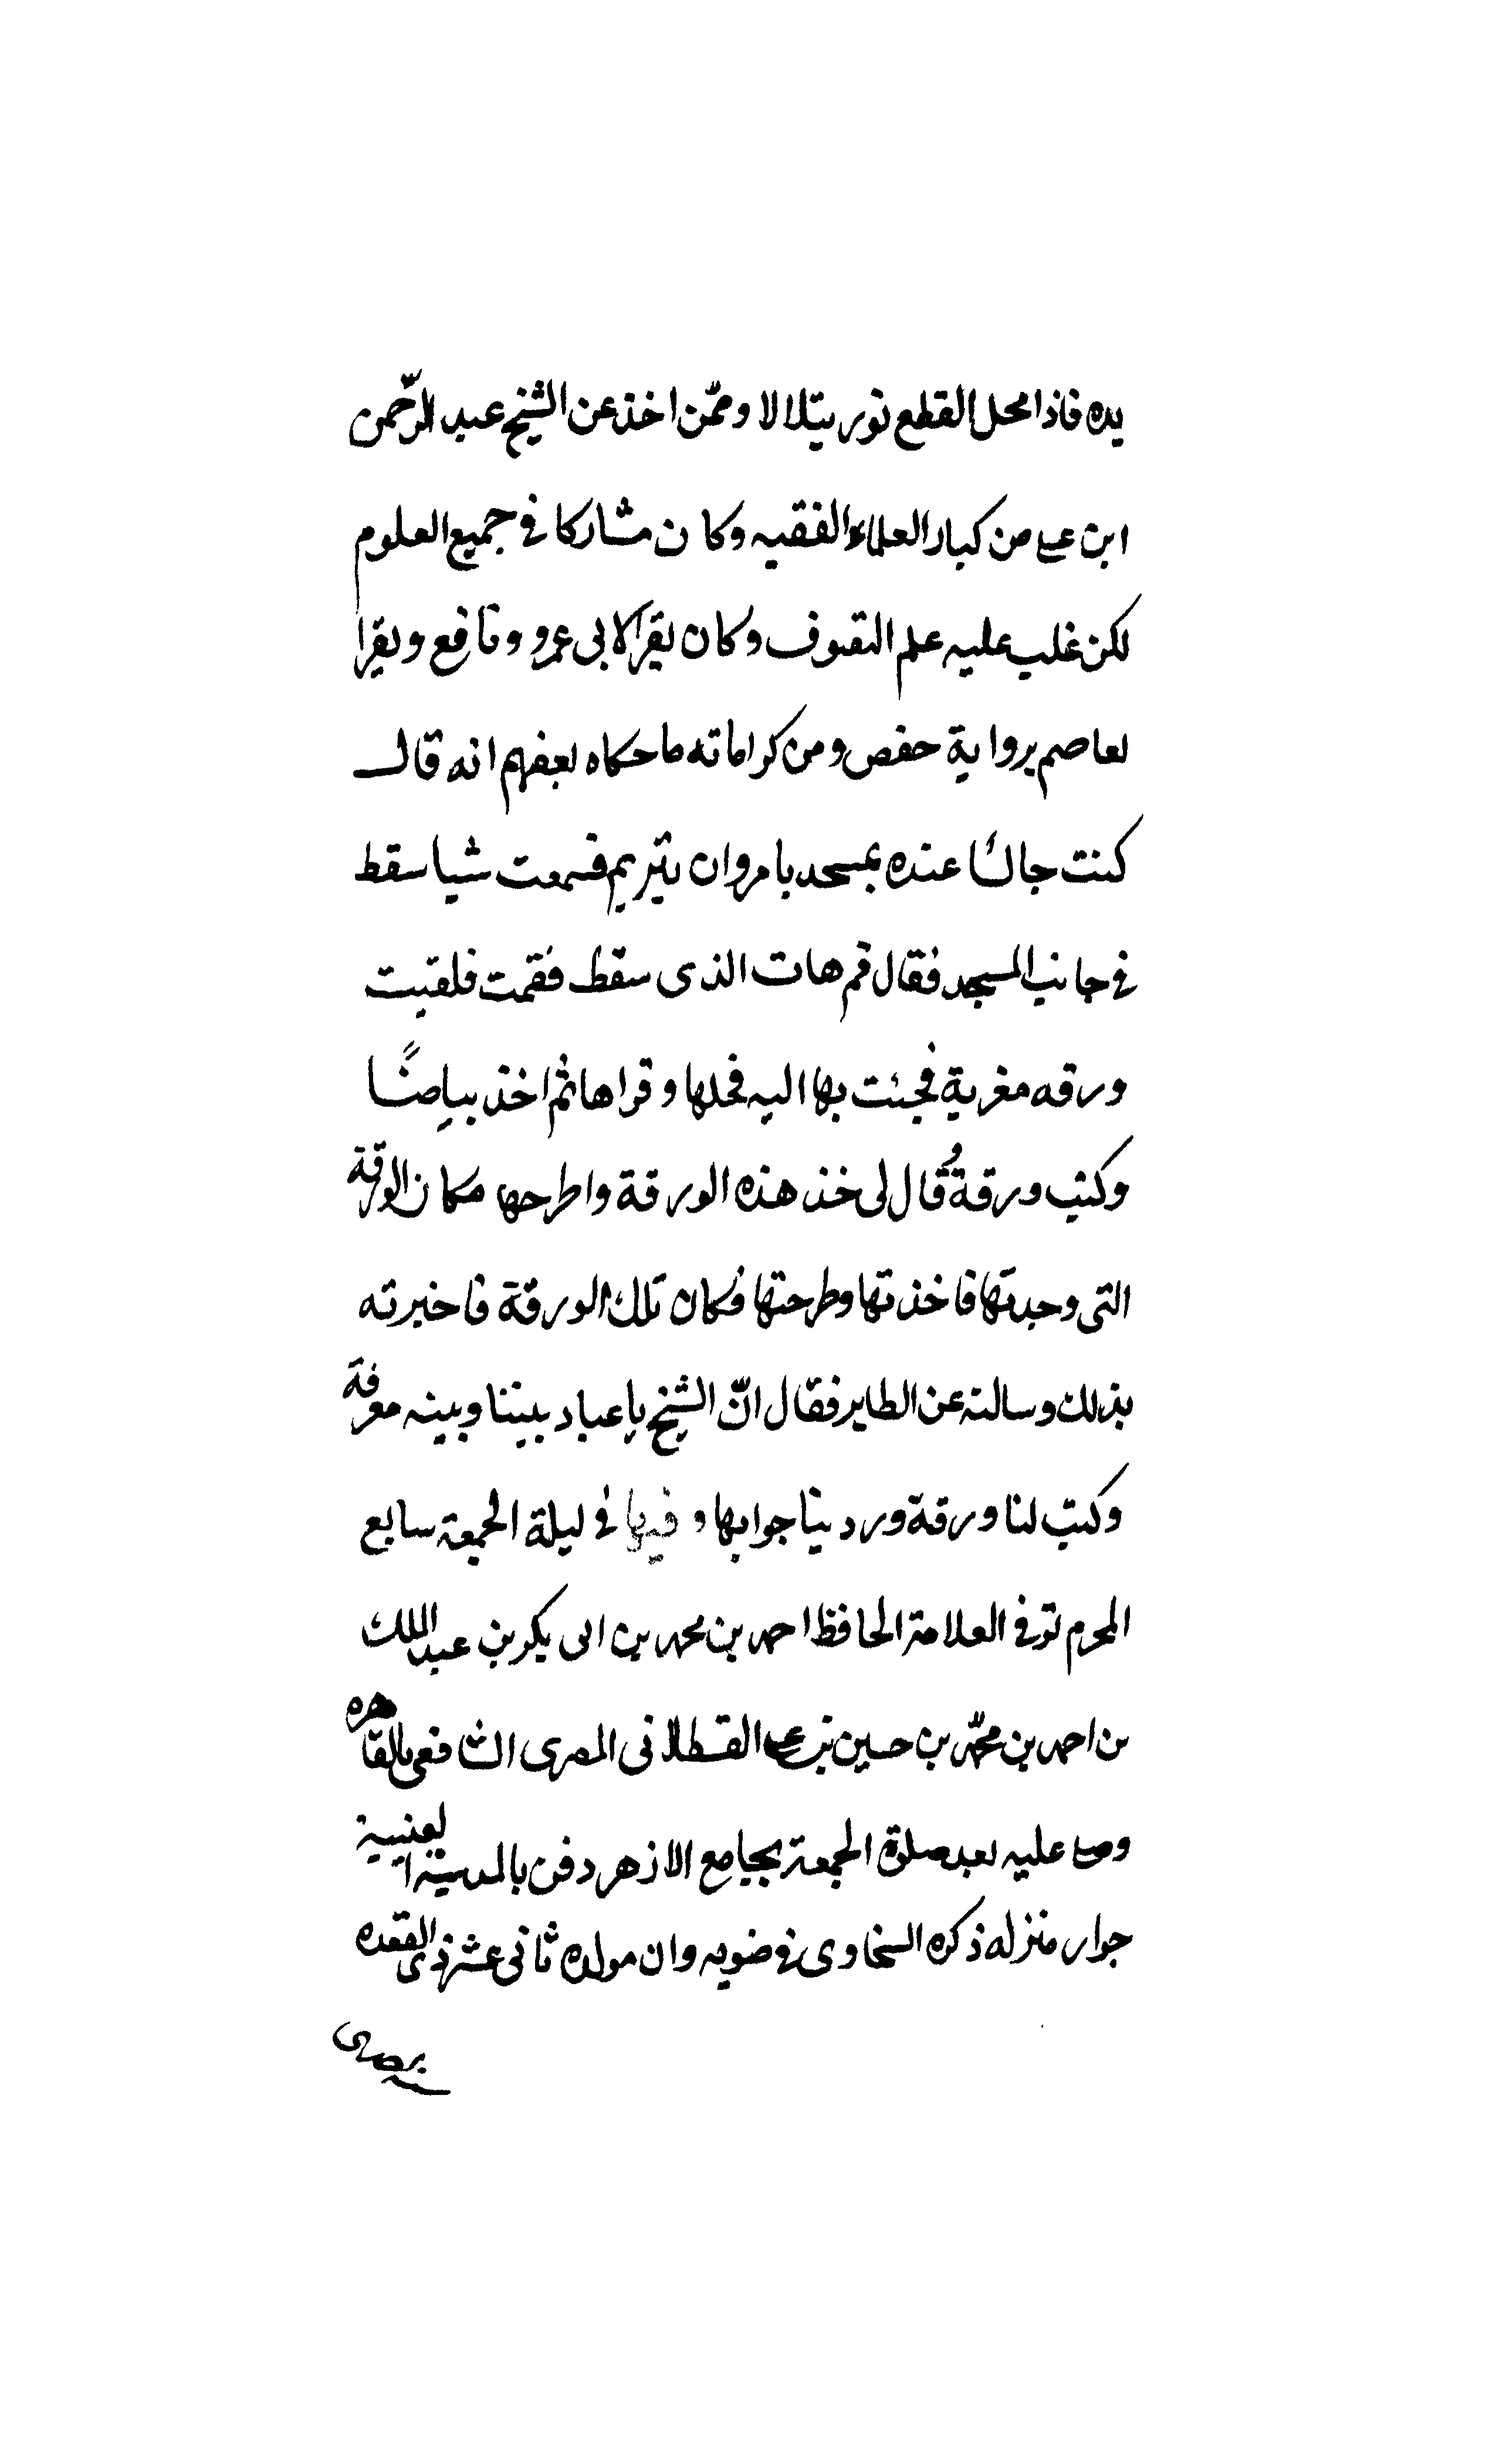 يده فاذا محل القطع نور يتلالا وممّن اخذ عن الشيخ عبد الرّحمن
ابن علي من كبار العلماء الفقيه وكان مشاركا في جميع العلوم
لكن غلب عليه علم التصوف وكان يقرا لابى عمرو ونافع ويقرا
لعاصم برواية حفص ومن كراماته ما حكاه بعضهم انه قال
كنت جالسا عنده بمسجد بامروان بتريم فسمعت شيا سقط
في جانب المسجد فقال قم هات الذى سقط فقمت فلقيت
ورقه مغربية فجئت بها اليه فحلها وقراها ثم اخذ بياضًا
وكتب ورقة وقال لى خذ هذه الورقة واطرحها مكان الورقة
التى وجدتها فاخذتها وطرحتها فكان تلك الورقة فاخبرته
بذلك وسالته عن الطاير فقال انّ الشيخ باعباد بيننا وبينه معرفة
وكتب لنا ورقة وردينا جوابها وفيها في ليلة الجمعة سابع
المحرم توفى العلامة الحافظ احمد بن محمد بن ابى بكر بن عبد الملك
بن احمد بن محمّد بن حسين بن على القسطلانى المصرى الشافعى بالقاهره
وصلى عليه بعد صلوة الجمعة بجامع الازهر دفن بالمدرسة العينية
جوار منزله ذكره السخاوى في ضويه وان مولده ثانى عشر ذى القعده